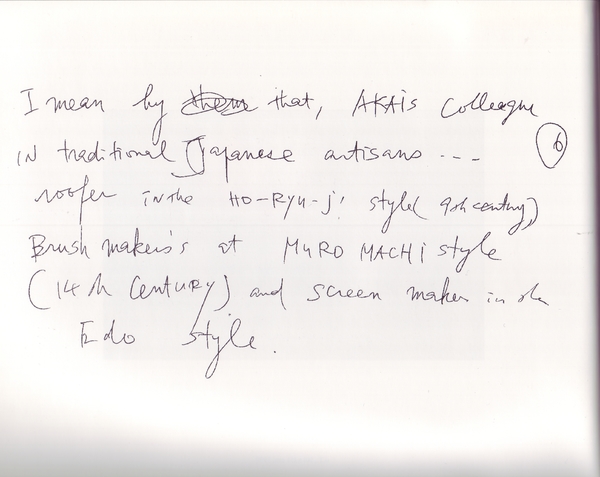 I mean by them that, AKAIS Colleague
6
IN traditional Japanese artisans ---
roofer in the HO-RYU-ji style (9th century)
Brush makers's at MURO MACHI style
(14th CENTURY) and screen maker in the
Edo style.